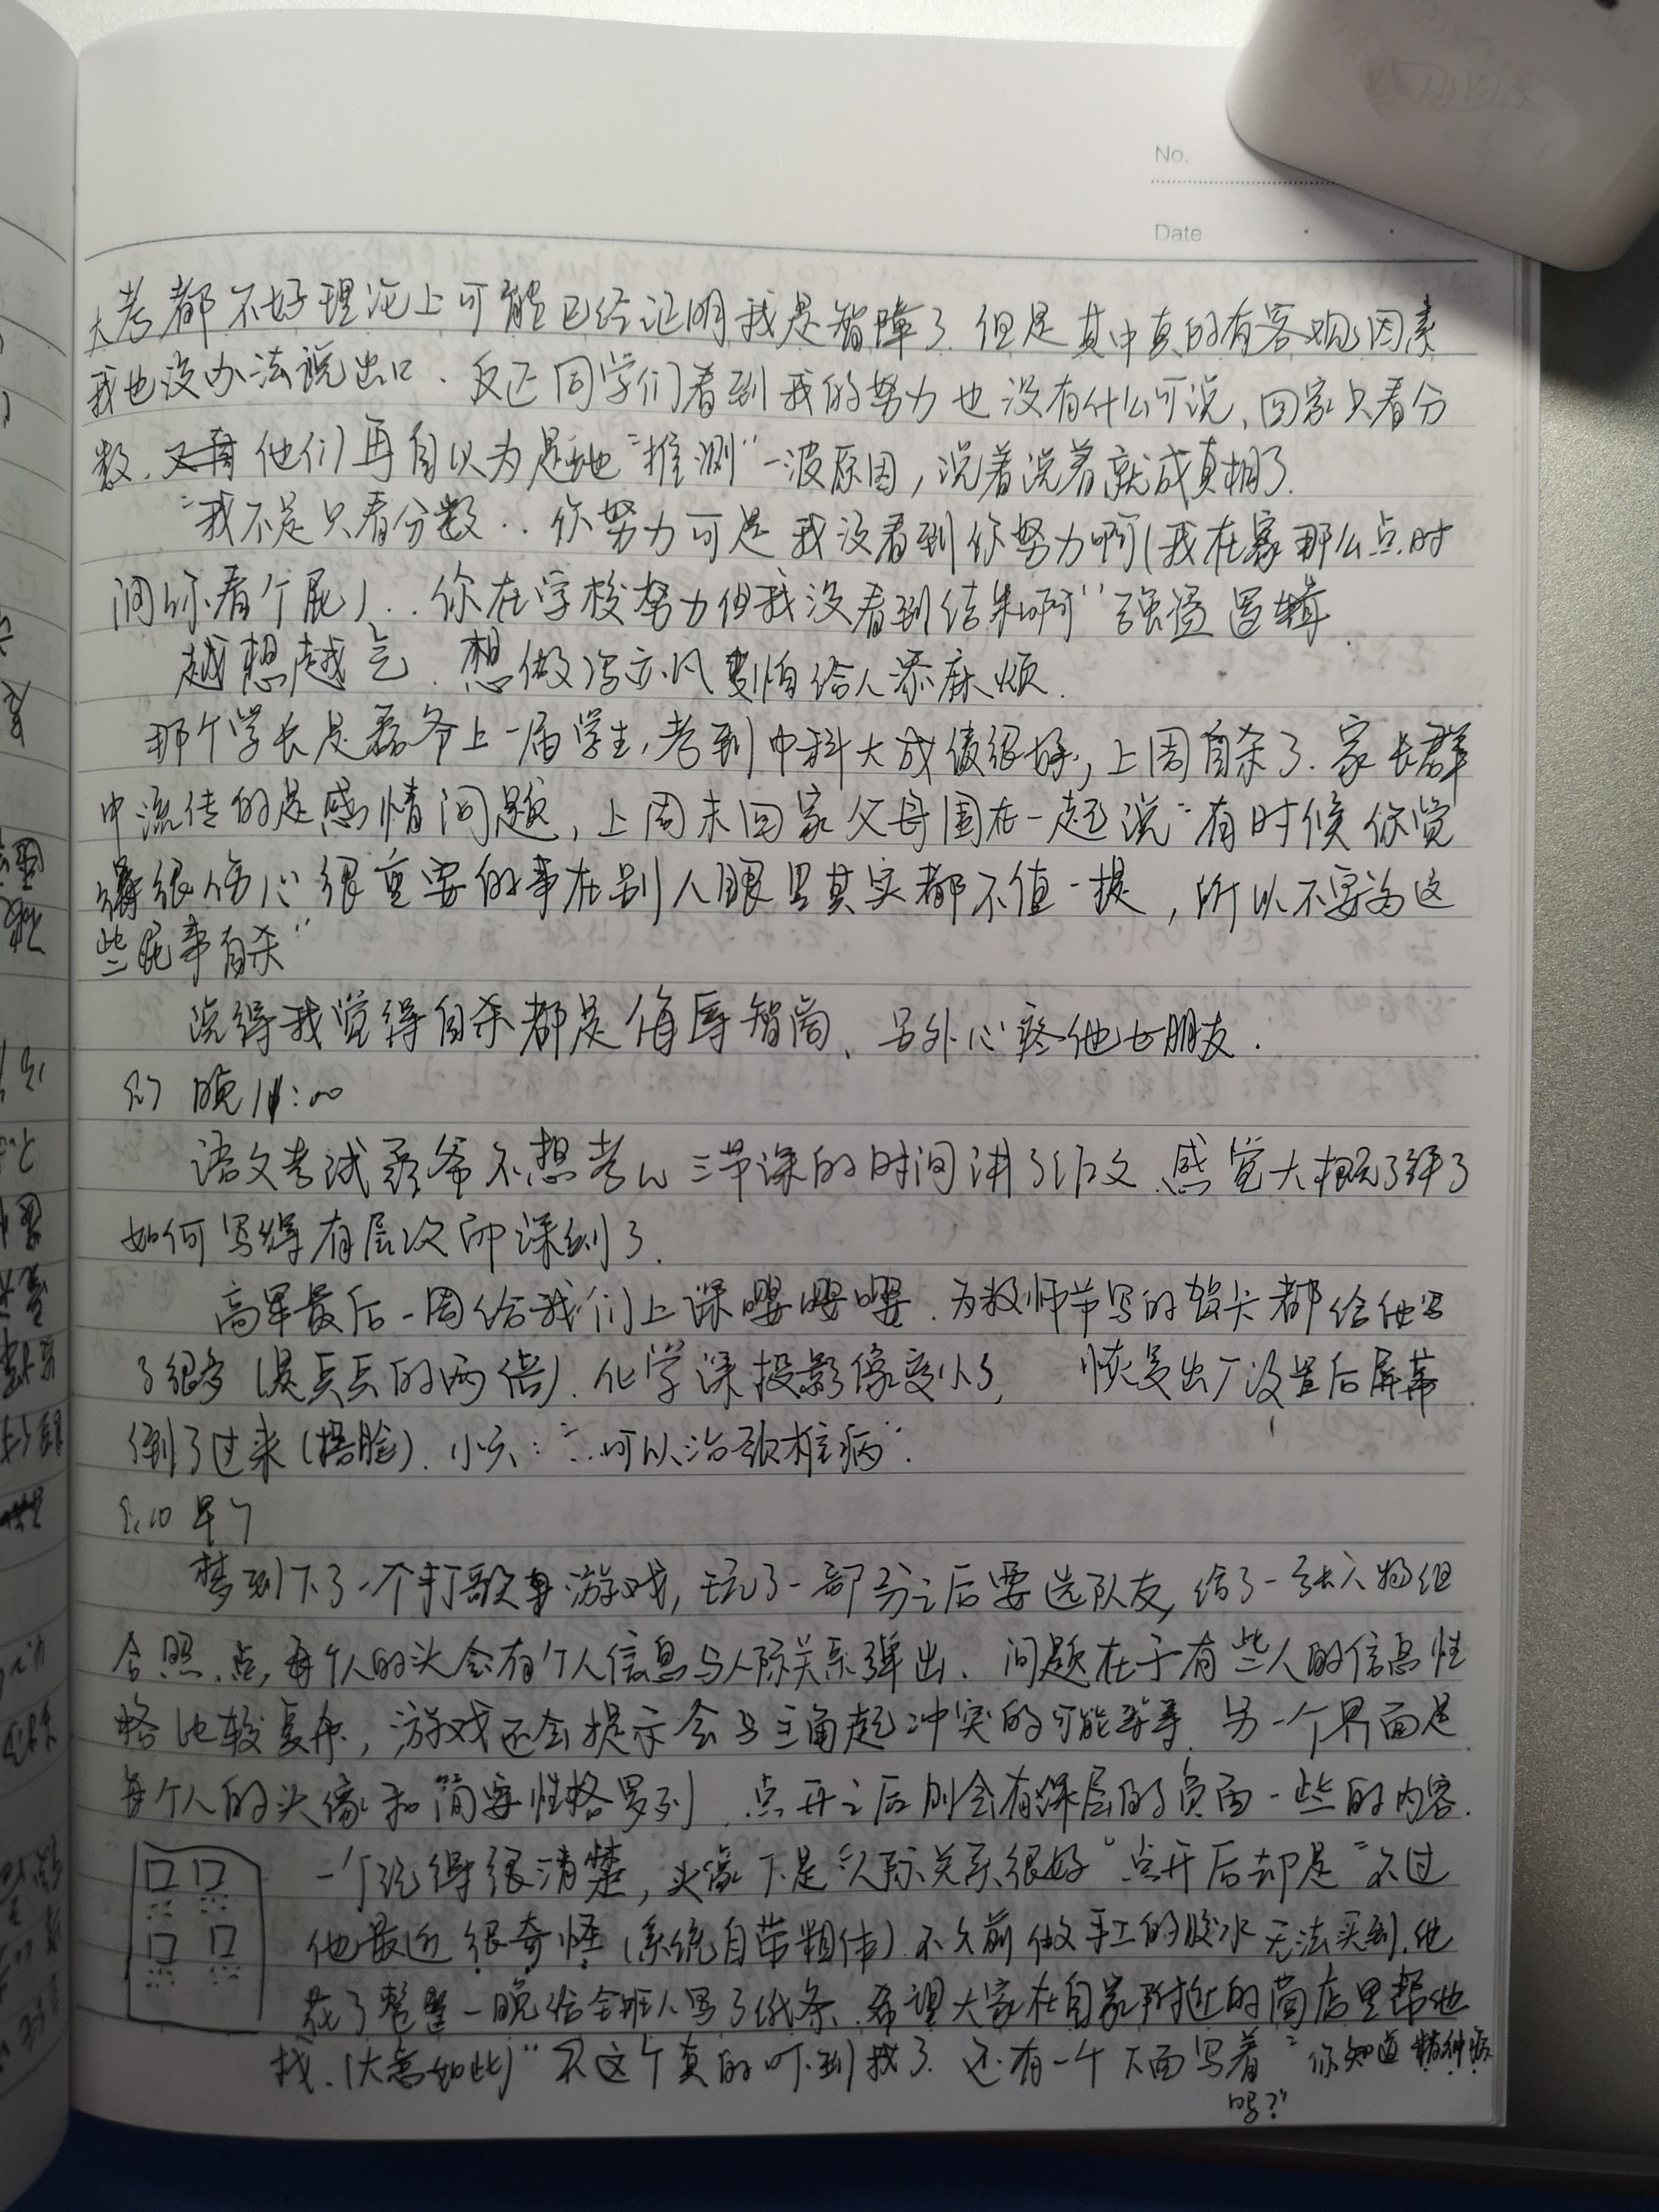 No.
Date
大考都不好理论上可能已经证明我是智障了.但是其中真的有客观因素
我也没办法说出口.反正同学们看到我的努力也没有什么可说,回家只看分
数.他们再自以为是地“推测”一波原因,说着说着就成真相了.
“我不是只看分数..你努力可是我没看到你努力啊(我在家那么点时
间你看个屁)..你在学校努力但我没看到结果啊”强盗逻辑.
越想越气.想做怕给人添麻烦.
那个学长是磊爷上一届学生,考到中科大成绩很好,上周自杀了.家长群
中流传的是感情问题,上周末回家父母围在一起说“有时候你觉
得很伤心很重要的事在别人眼里其实都不值一提,所以不要为这
些屁事自杀”
说得我觉得自杀都是侮辱智商、另外心疼他女朋友.
晚11:00
语文考试磊爷不想考了三节课的时间讲了作文.感觉大概了解了
如何写得有层次而深刻了.
高军最后一周给我们上课嘤嘤嘤.为教师节写的都给他写
了很多(是兵兵的两倍).化学课投影像变小了,恢复出厂设置后屏幕
倒了过来(捂脸).小六:“..可以治颈椎病”.
9.10 早7
梦到下了一个打歌游戏,玩了一部分之后要选队友,给了一张人物组
合照.点每个人的头会有个人信息与人际关系弹出.问题在于有些人的信息性
格比较复杂,游戏还会提示会与主角起冲突的可能等等.另一个界面是
每个人的头像和简要性格罗列.点开之后则会有深层的负面一些的内容.
一个记得很清楚,头像下是“人际关系很好”点开后却是“不过
他最近很奇怪(系统自带粗体).不久前做手工的胶水无法买到.他
花了整整一晚给全班人写了纸条.希望大家在自家附近的商店里帮他
找.(大意如此)”这个真的吓到我了.还有一个下面写着“你知道精神病
吗?”